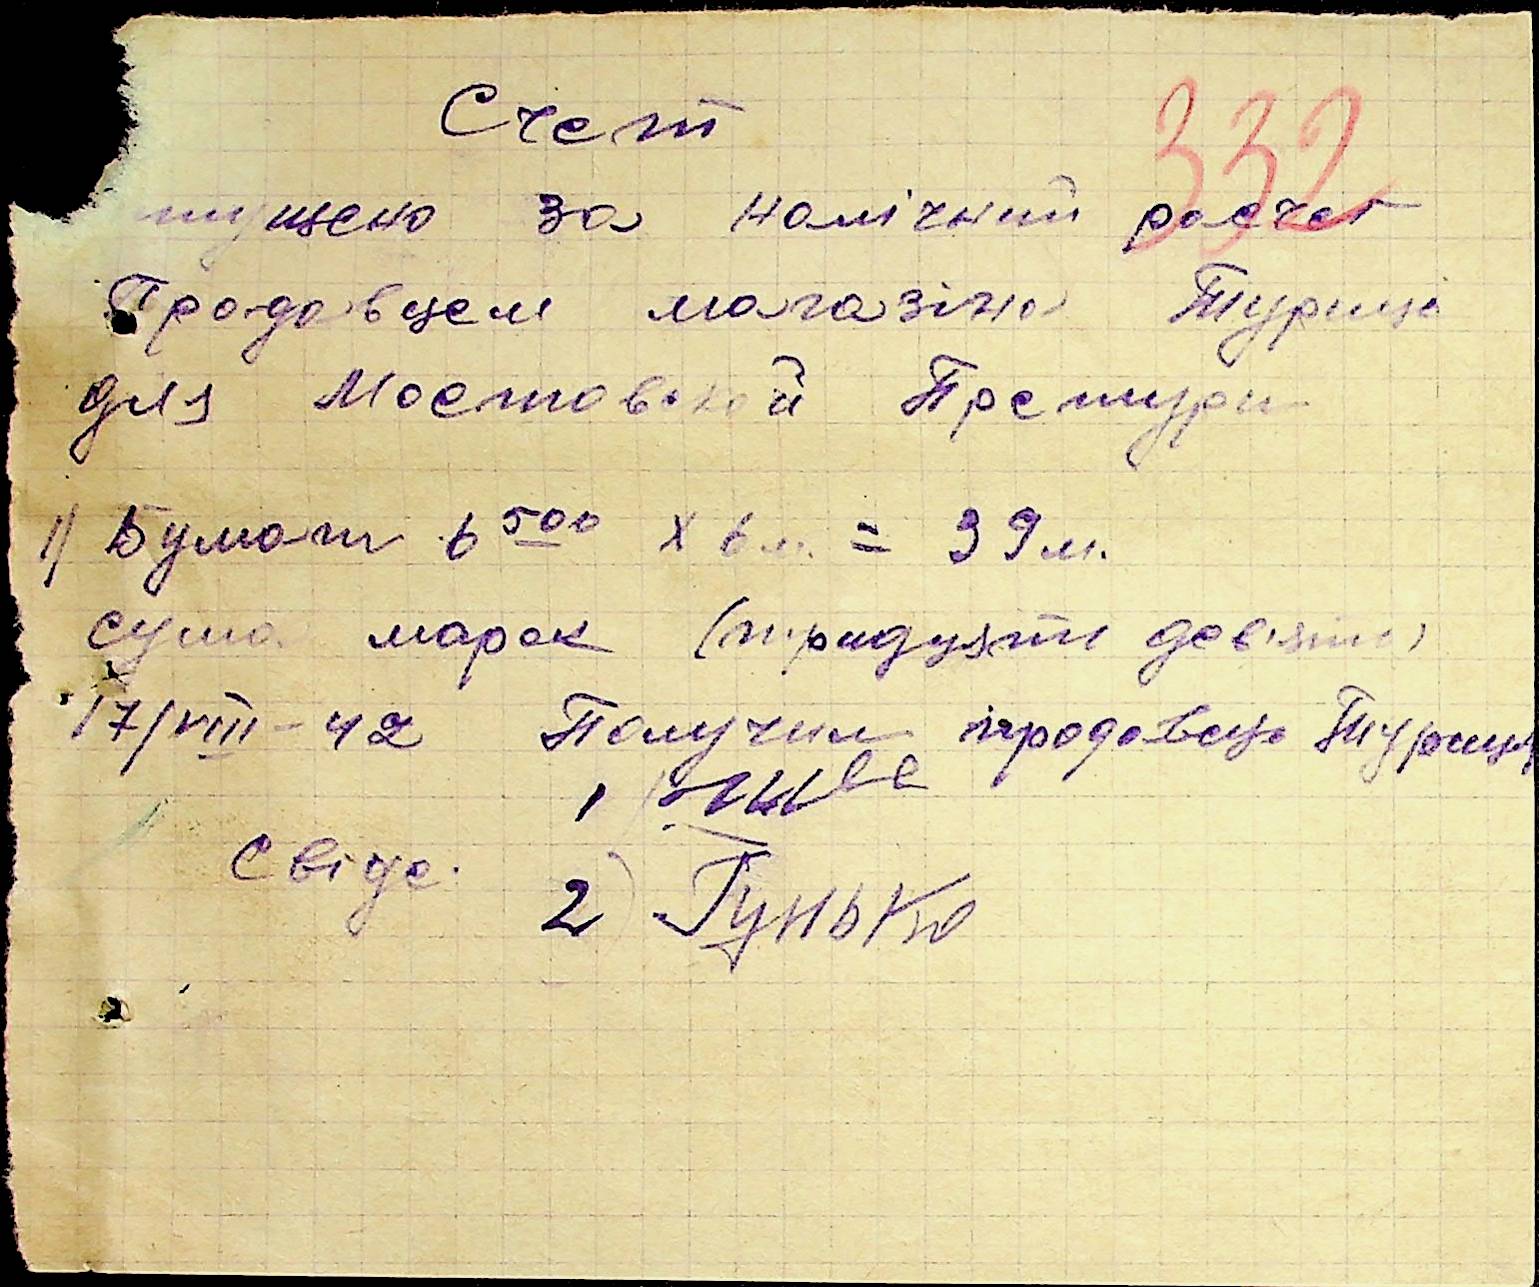 Счет
332
тущено за налічний расчет
Продавцем магазіна Турица
для Мостовской Претури
1) Бумаги 6 500 х 6 м. = 39 м.
сума марок (тридцять девять)
17/VIII-42 Получил продавец Турица
1)
Свіде. 2) Гунько